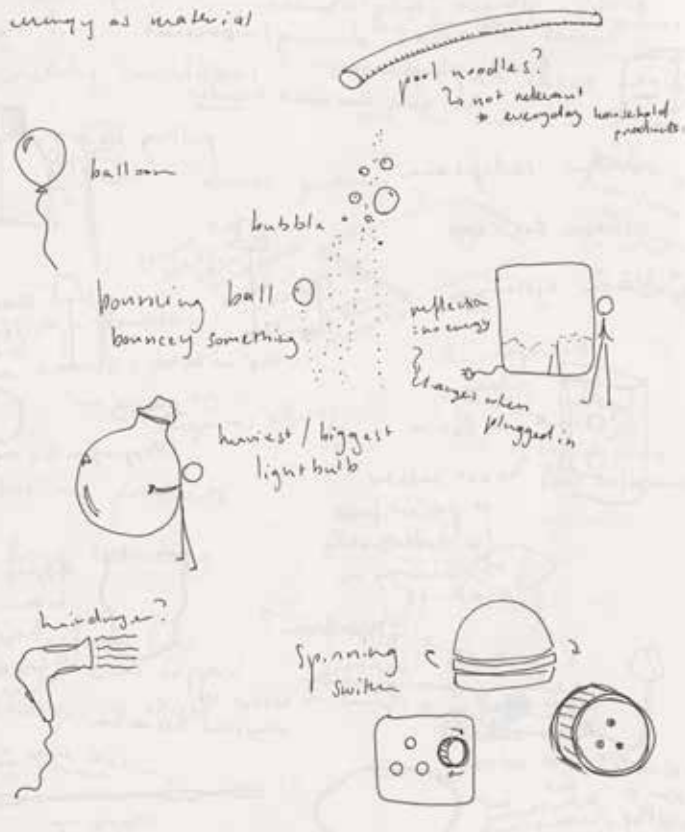 energy as material
pool noodles?
↳ not relevant
* everyday household
products
balloon
bubble
bouncing ball
bouncey something
reflection
= no energy
?
changes when
plugged in
heaviest / biggest
lightbulb
hairdryer?
Spinning
Switch